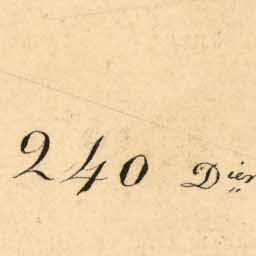 240 Dier